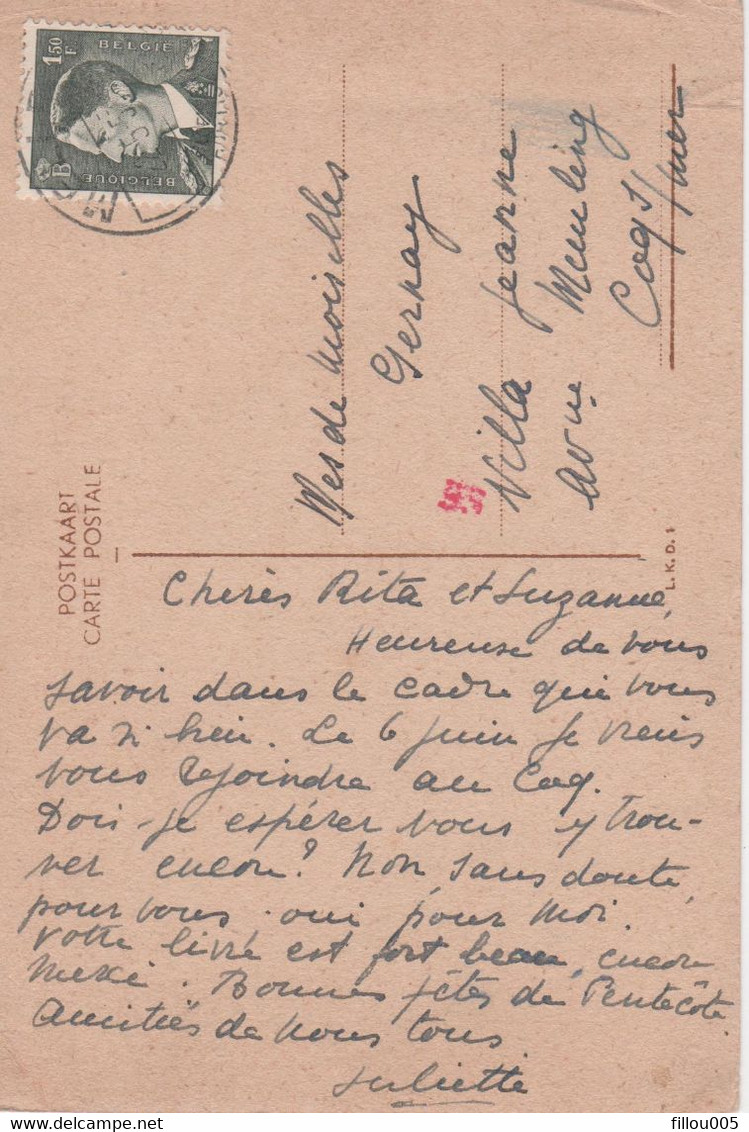 1.50 F.
BELGIË
B
BELGIQUE
POSTKAART
CARTE POSTALE
Mesdemoiselles
Gernay
Villa Jeanne
Avue Memling
Coq s/mer
L.K.D. 1
Cherès Rita et Suzanne,
Heureuse de vous
savoir dans le cadre qui vous
va si bien. Le 6 juin je viens
vous rejoindre au Coq.
Dois-je espérer vous y trou-
ver encore? Non sans doute,
pour vous. oui pour moi.
Votre livre est fort beau, encore
merci. Bonnes fêtes de Pentecôte
Amitiés de nous tous
Juliette
fillou005